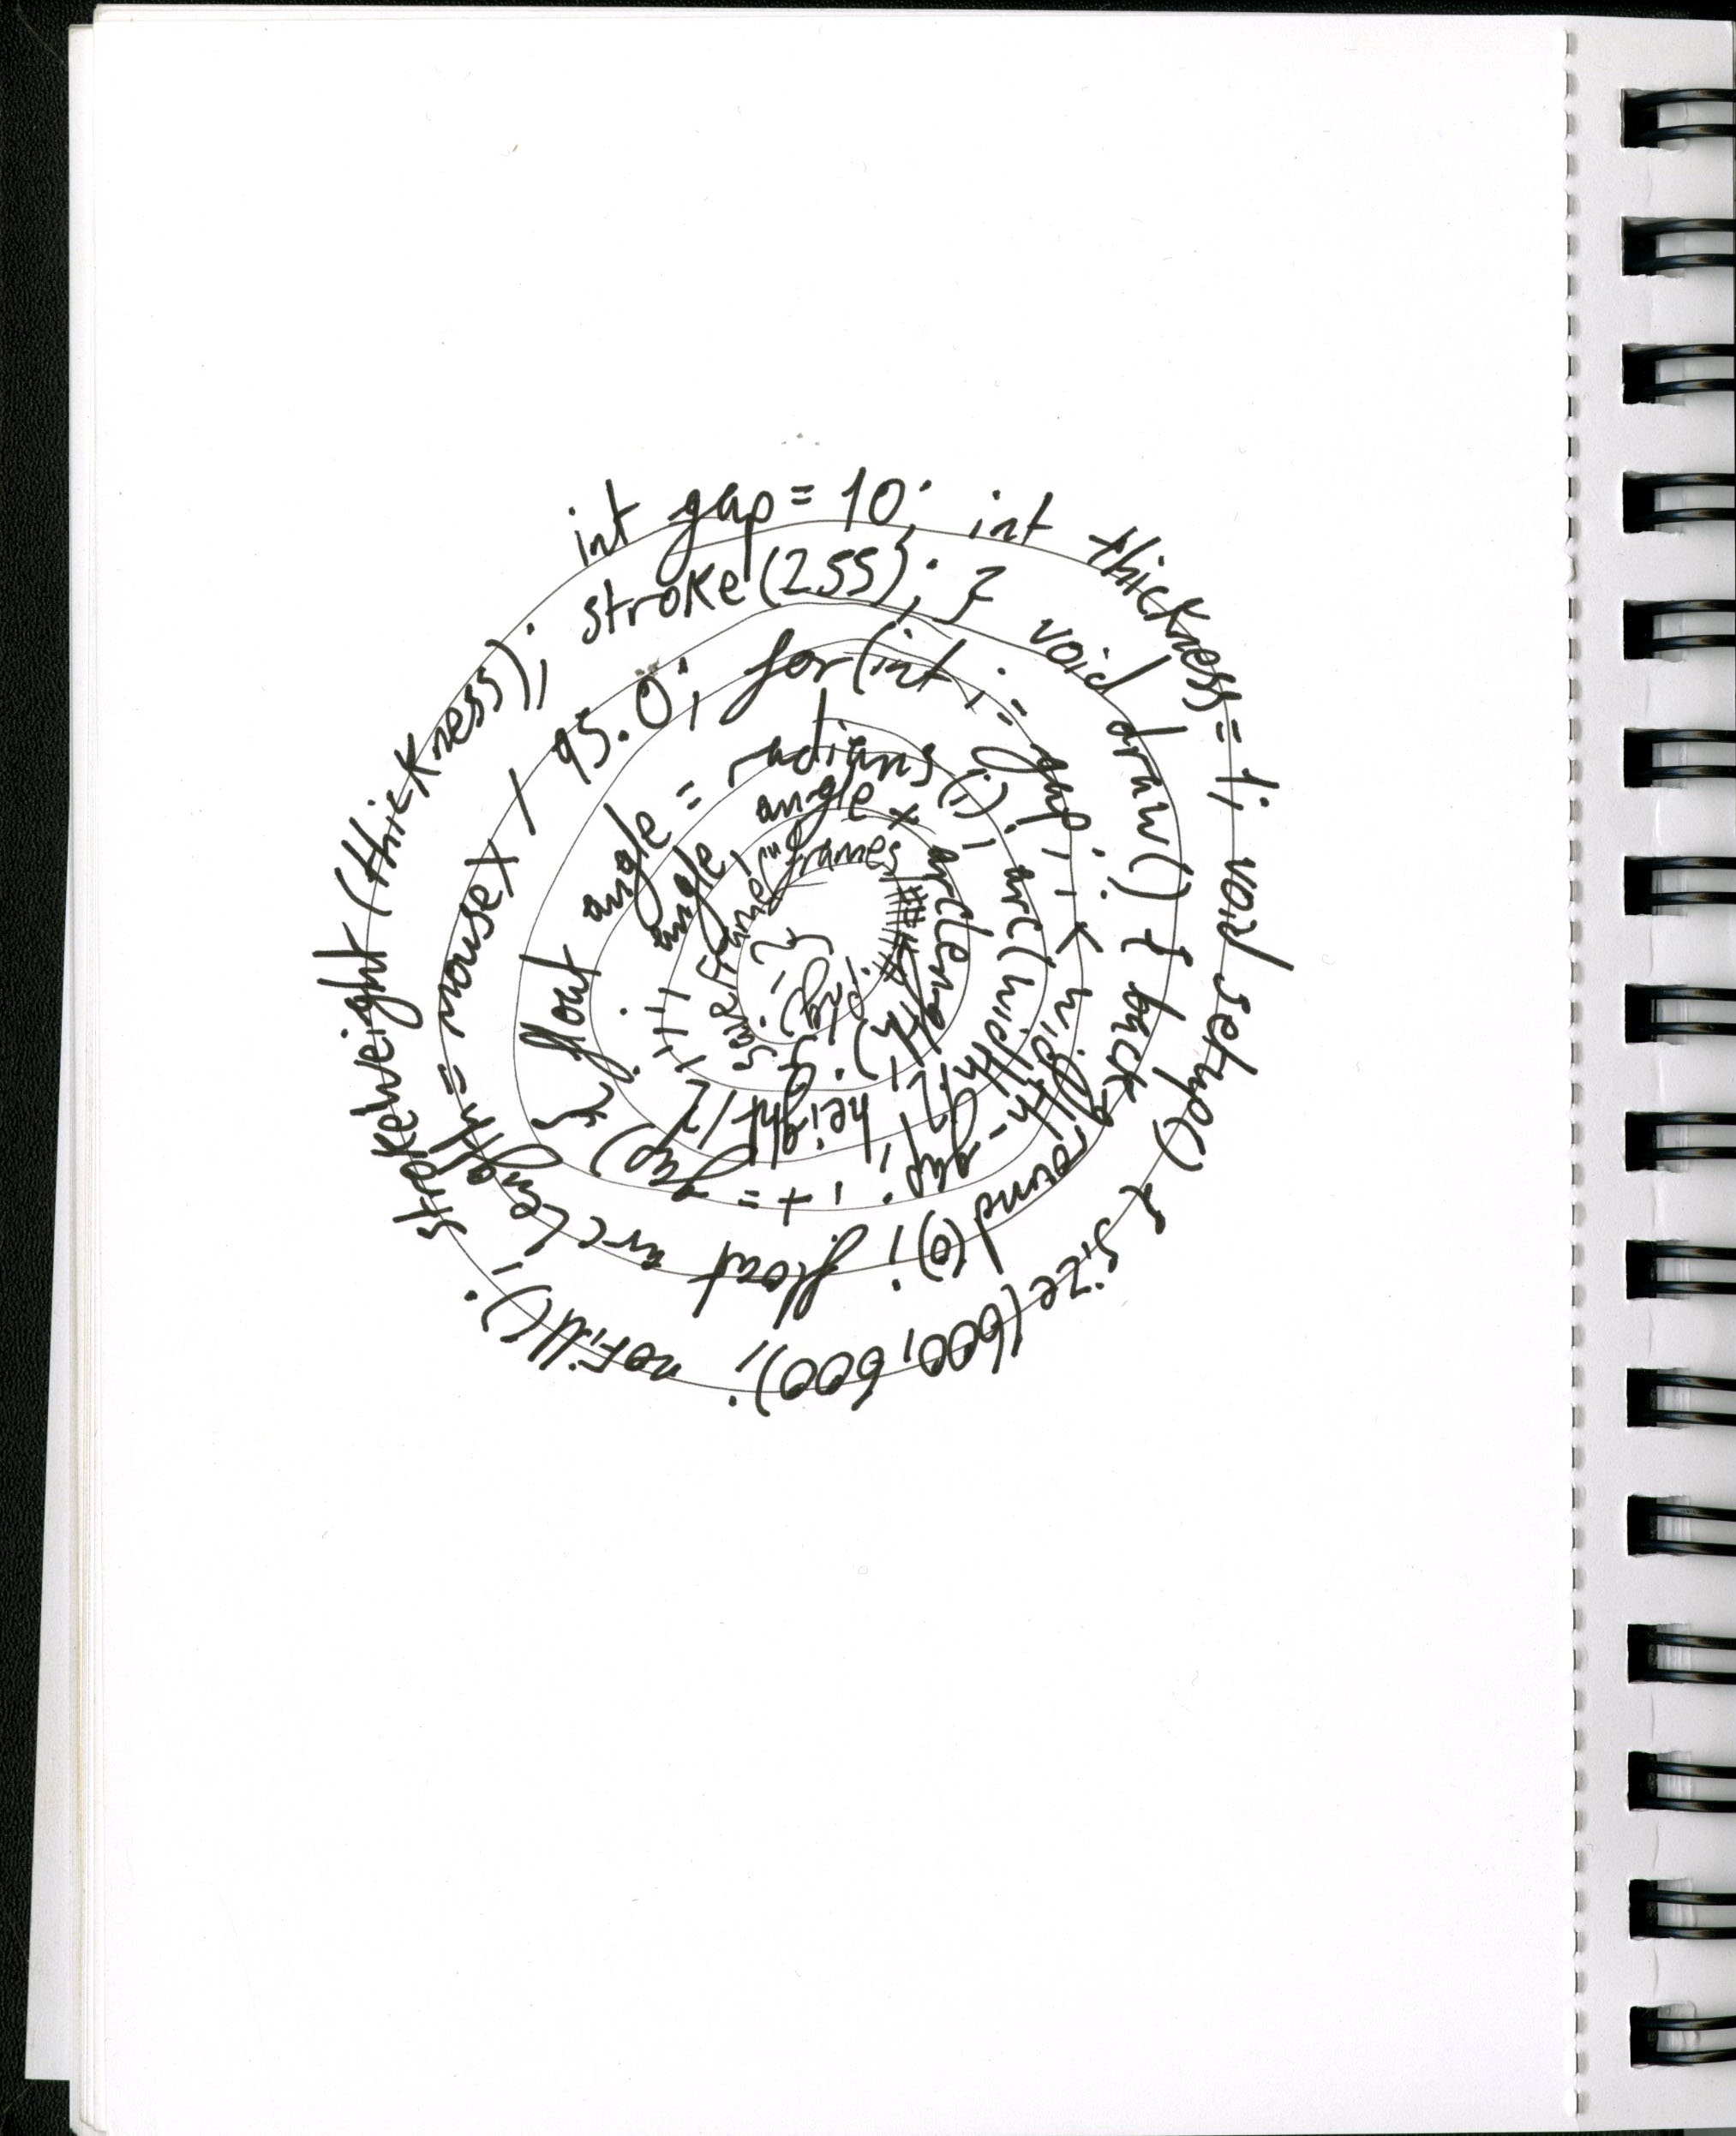 int gap = 10; int thickness = 1; void setup() { size(600, 600); noFill(); strokeweight (thickness);
stroke (255); } void draw() { background(0); float arcLength = mouseX / 95.0;
for (int i = gap; i < width - gap; i += gap) { float
angle = radians (i); arc(width/2, height/2, i, i,
angle, angle + arclength); } saveFrame("frames/####
}